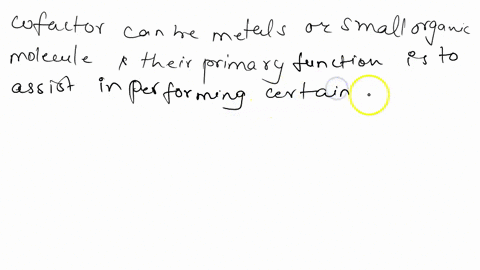 cofactor can be metals or small organic
molecule & their primary function is to
assist in performing certain